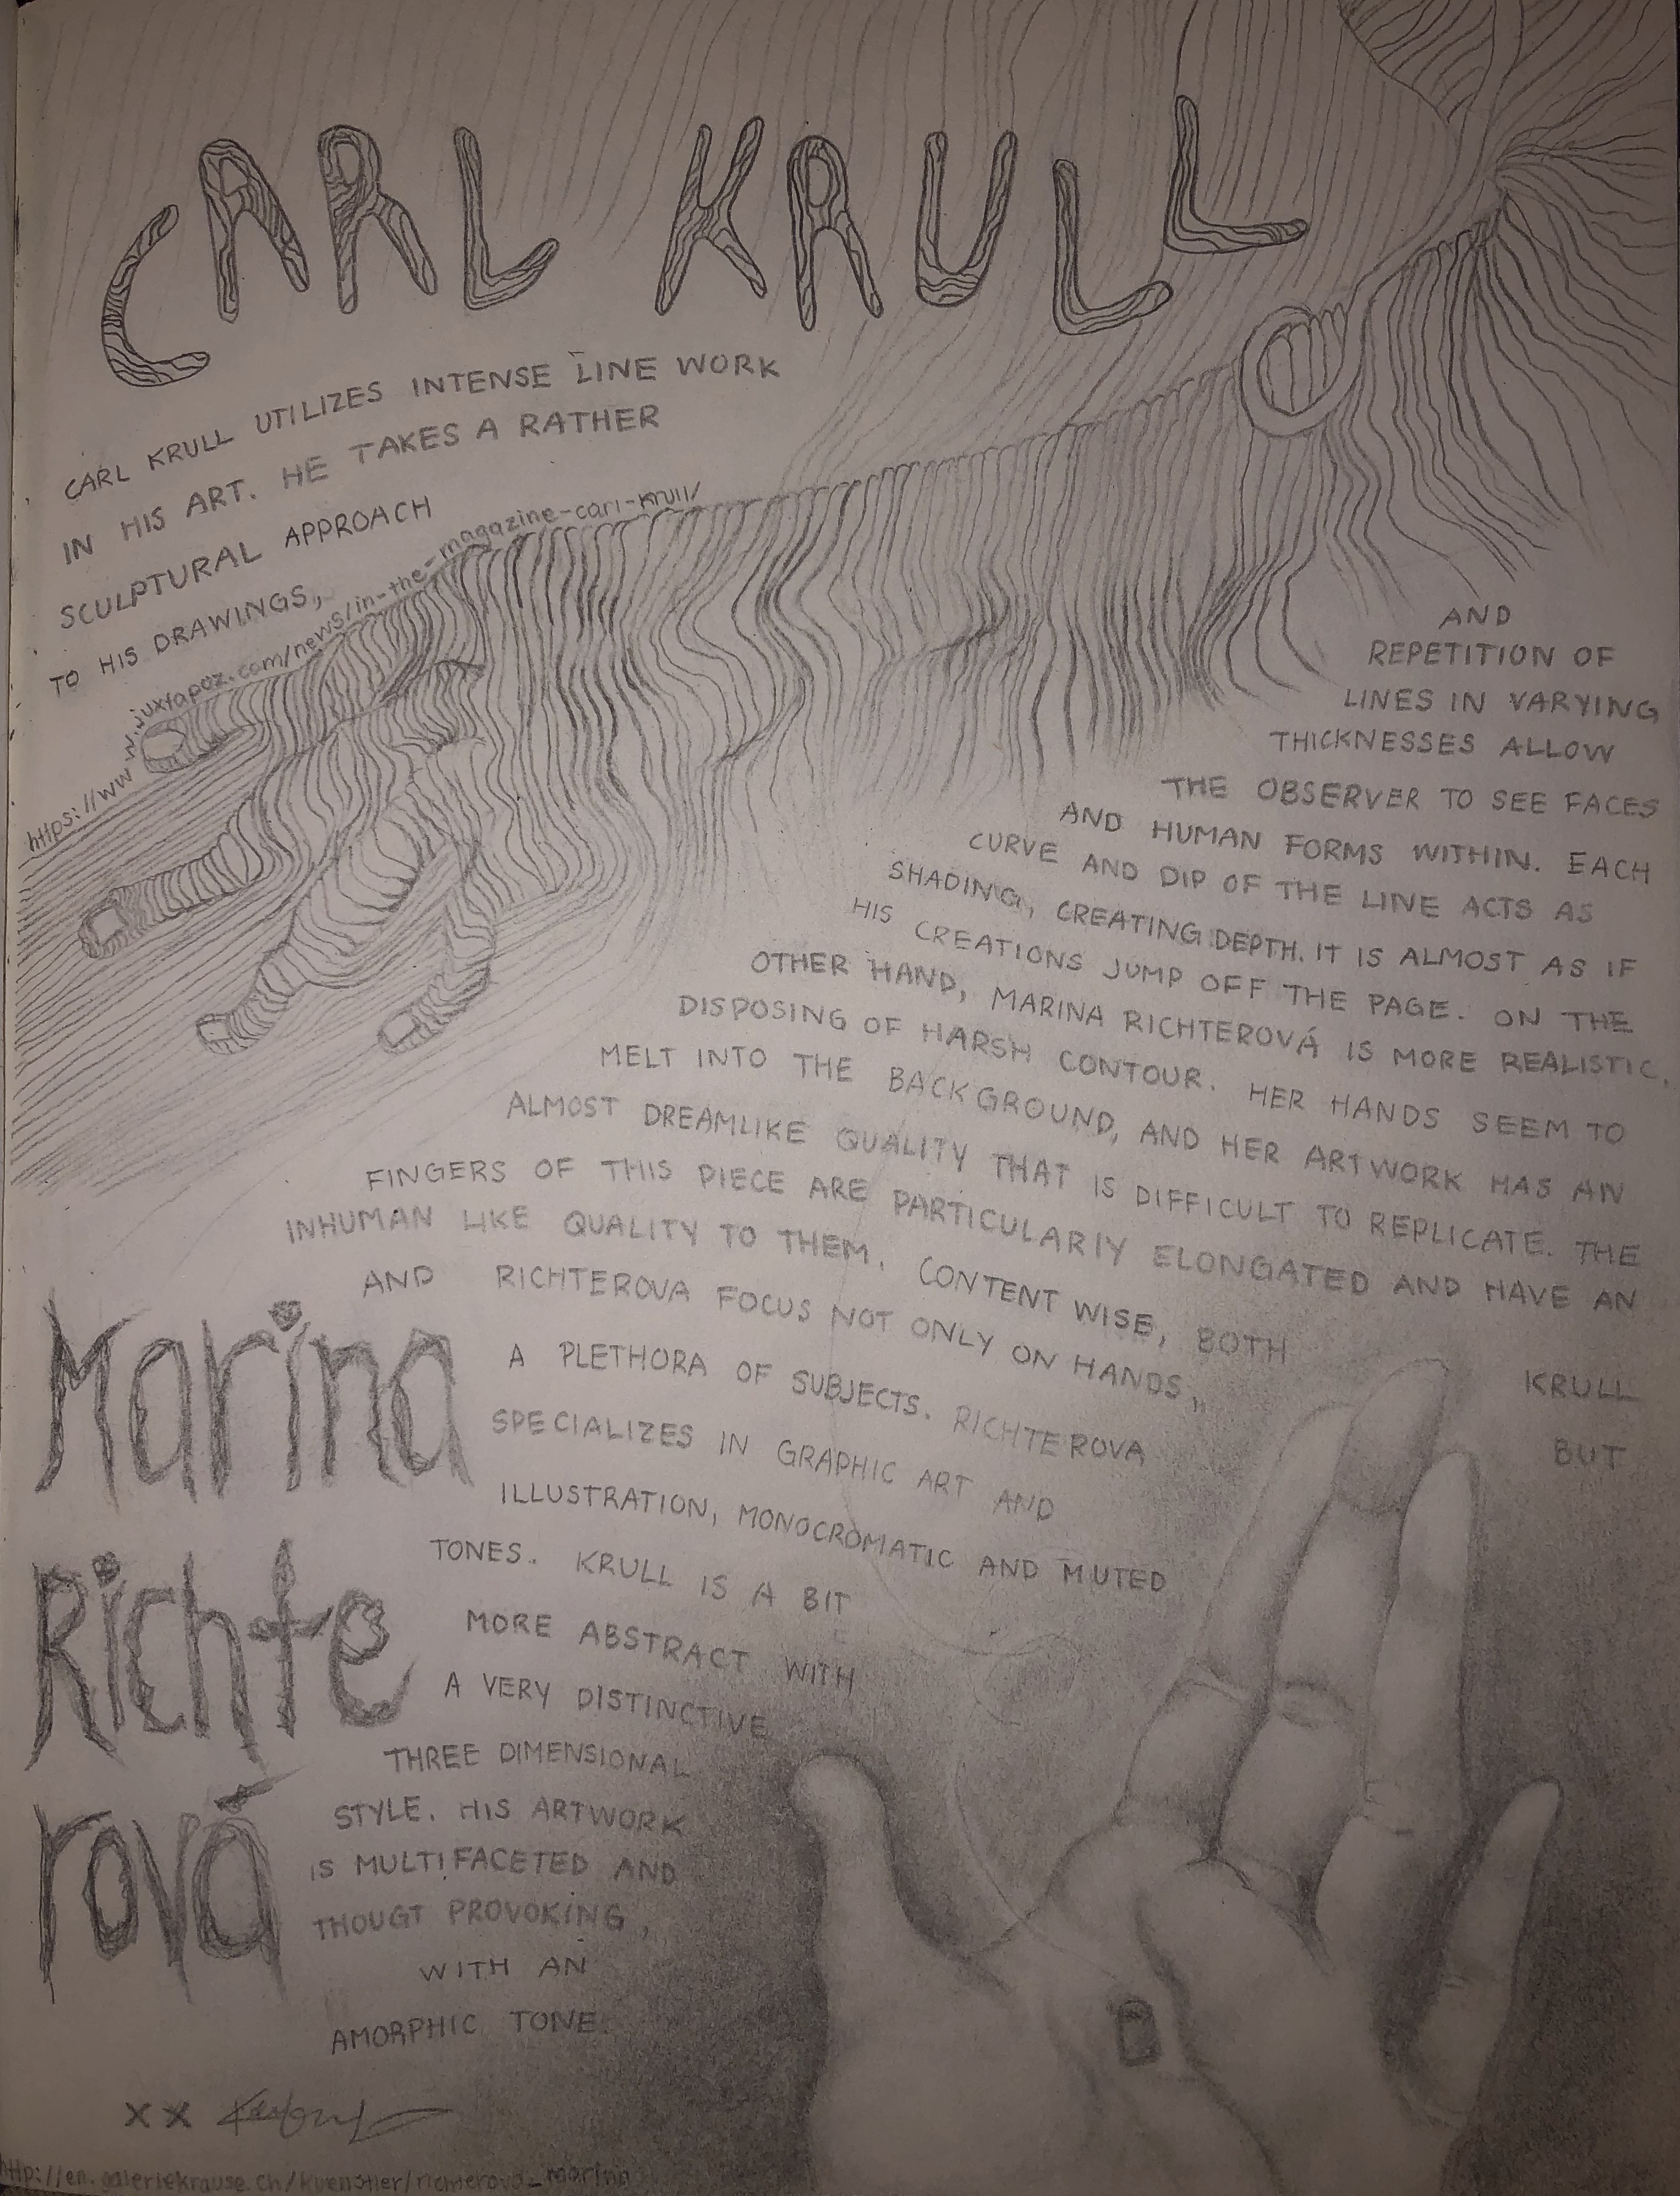 CARL KRULL
CARL KRULL UTILIZES INTENSE LINE WORK
IN HIS ART. HE TAKES A RATHER
SCULPTURAL APPROACH
TO HIS DRAWINGS,
https://www.juxtapoz.com/news/in-the-magazine-carl-krull/
AND
REPETITION OF
LINES IN VARYING
THICKNESSES ALLOW
THE OBSERVER TO SEE FACES
AND HUMAN FORMS WITHIN. EACH
CURVE AND DIP OF THE LINE ACTS AS
SHADING, CREATING DEPTH. IT IS ALMOST AS IF
HIS CREATIONS JUMP OFF THE PAGE. ON THE
OTHER HAND, MARINA RICHTEROVÁ IS MORE REALISTIC,
DISPOSING OF HARSH CONTOUR. HER HANDS SEEM TO
MELT INTO THE BACKGROUND, AND HER ARTWORK HAS AN
ALMOST DREAMLIKE QUALITY THAT IS DIFFICULT TO REPLICATE. THE
FINGERS OF THIS PIECE ARE PARTICULARLY ELONGATED AND HAVE AN
INHUMAN LIKE QUALITY TO THEM. CONTENT WISE, BOTH KRULL
AND RICHTEROVA FOCUS NOT ONLY ON HANDS, BUT
A PLETHORA OF SUBJECTS. RICHTEROVA
SPECIALIZES IN GRAPHIC ART AND
ILLUSTRATION, MONOCROMATIC AND MUTED
TONES. KRULL IS A BIT
MORE ABSTRACT WITH
A VERY DISTINCTIVE
THREE DIMENSIONAL
STYLE. HIS ARTWORK
IS MULTIFACETED AND
THOUGT PROVOKING,
WITH AN
AMORPHIC TONE.
Marina
Richte
rová
XX
http://en.galeriekrause.ch/kuenstler/richterova_marina